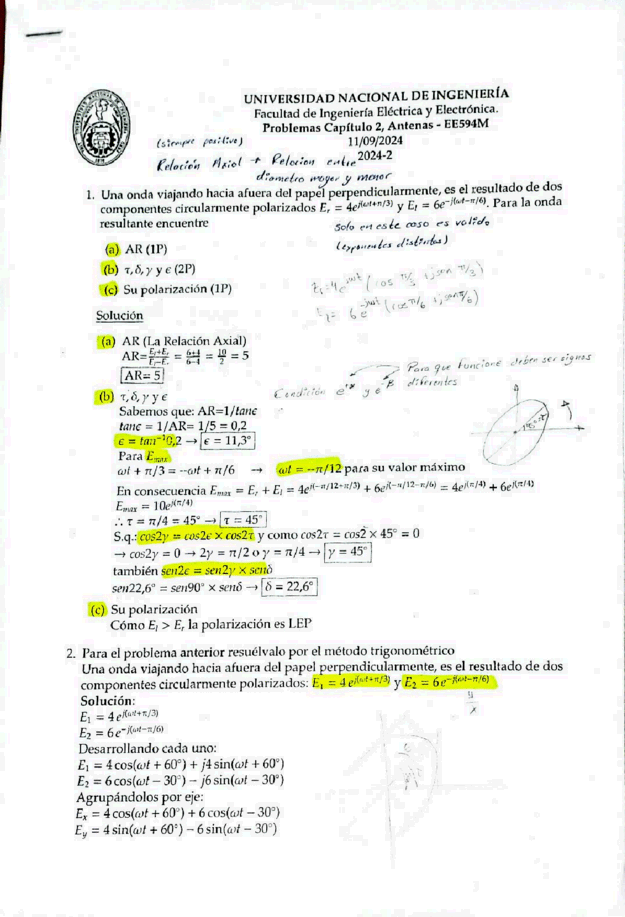 UNIVERSIDAD NACIONAL DE INGENIERÍA
Facultad de Ingeniería Eléctrica y Electrónica.
Problemas Capítulo 2, Antenas - EE594M
(siempre positive) 11/09/2024
Relación Axial → Relacion entre 2024-2
diametro mayor y menor
1. Una onda viajando hacia afuera del papel perpendicularmente, es el resultado de dos
componentes circularmente polarizados E_r = 4e^{j(ωt+π/3)} y E_l = 6e^{-j(ωt-π/6)}. Para la onda
resultante encuentre
solo en este caso es valido
(exponentes distintos)
(a) AR (1P)
(b) τ, δ, γ y ϵ (2P)
(c) Su polarización (1P)
Solución
(a) AR (La Relación Axial)
AR=\frac{E_l+E_r}{E_l-E_r} = \frac{6+4}{6-4} = \frac{10}{2} = 5
AR= 5
Para que funcione deben ser signos
diferentes
(b) τ, δ, γ y ϵ
Sabemos que: AR=1/tanϵ
tanϵ = 1/AR= 1/5 = 0,2
ϵ = tan⁻¹0,2 → ϵ = 11,3°
Para E_{max}
ωt + π/3 = −ωt + π/6 → ωt = −π/12 para su valor máximo
En consecuencia E_{max} = E_r + E_l = 4e^{j(−π/12+π/3)} + 6e^{j(−π/12−π/6)} = 4e^{j(π/4)} + 6e^{j(π/4)}
E_{max} = 10e^{j(π/4)}
∴ τ = π/4 = 45° → τ = 45°
S.q.: cos2γ = cos2ϵ × cos2τ y como cos2τ = cos2 × 45° = 0
→ cos2γ = 0 → 2γ = π/2 o γ = π/4 → γ = 45°
también sen2ϵ = sen2γ × senδ
sen22,6° = sen90° × senδ → δ = 22,6°
(c) Su polarización
Cómo E_l > E_r la polarización es LEP
2. Para el problema anterior resuélvalo por el método trigonométrico
Una onda viajando hacia afuera del papel perpendicularmente, es el resultado de dos
componentes circularmente polarizados: E_1 = 4 e^{j(ωt+π/3)} y E_2 = 6e^{−j(ωt−π/6)}
Solución:
E_1 = 4 e^{j(ωt+π/3)}
E_2 = 6 e^{−j(ωt−π/6)}
Desarrollando cada uno:
E_1 = 4 cos(ωt + 60°) + j4 sin(ωt + 60°)
E_2 = 6 cos(ωt − 30°) − j6 sin(ωt − 30°)
Agrupándolos por eje:
E_x = 4 cos(ωt + 60°) + 6 cos(ωt − 30°)
E_y = 4 sin(ωt + 60°) − 6 sin(ωt − 30°)